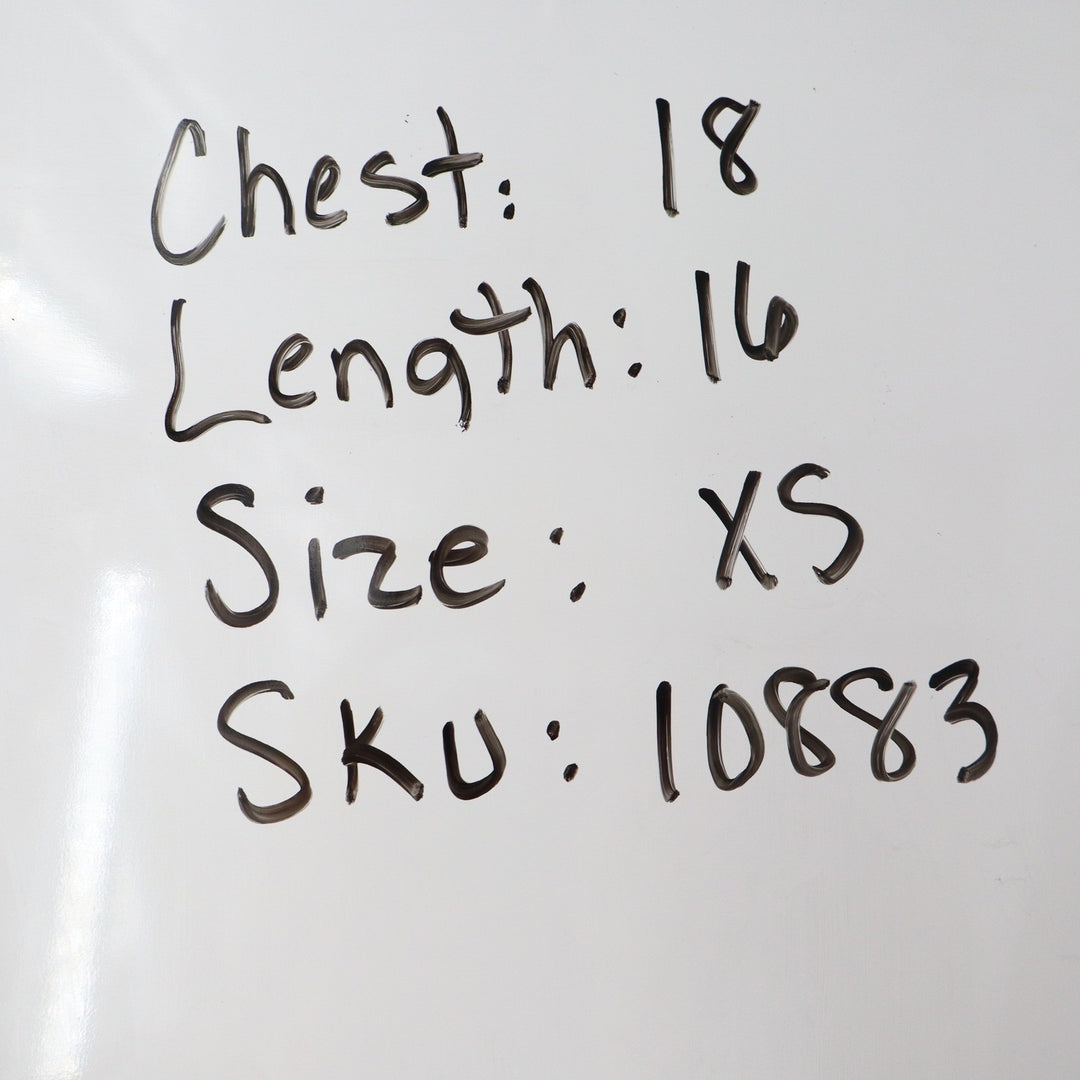 Chest: 18
Length: 16
Size: XS
SKU: 10883